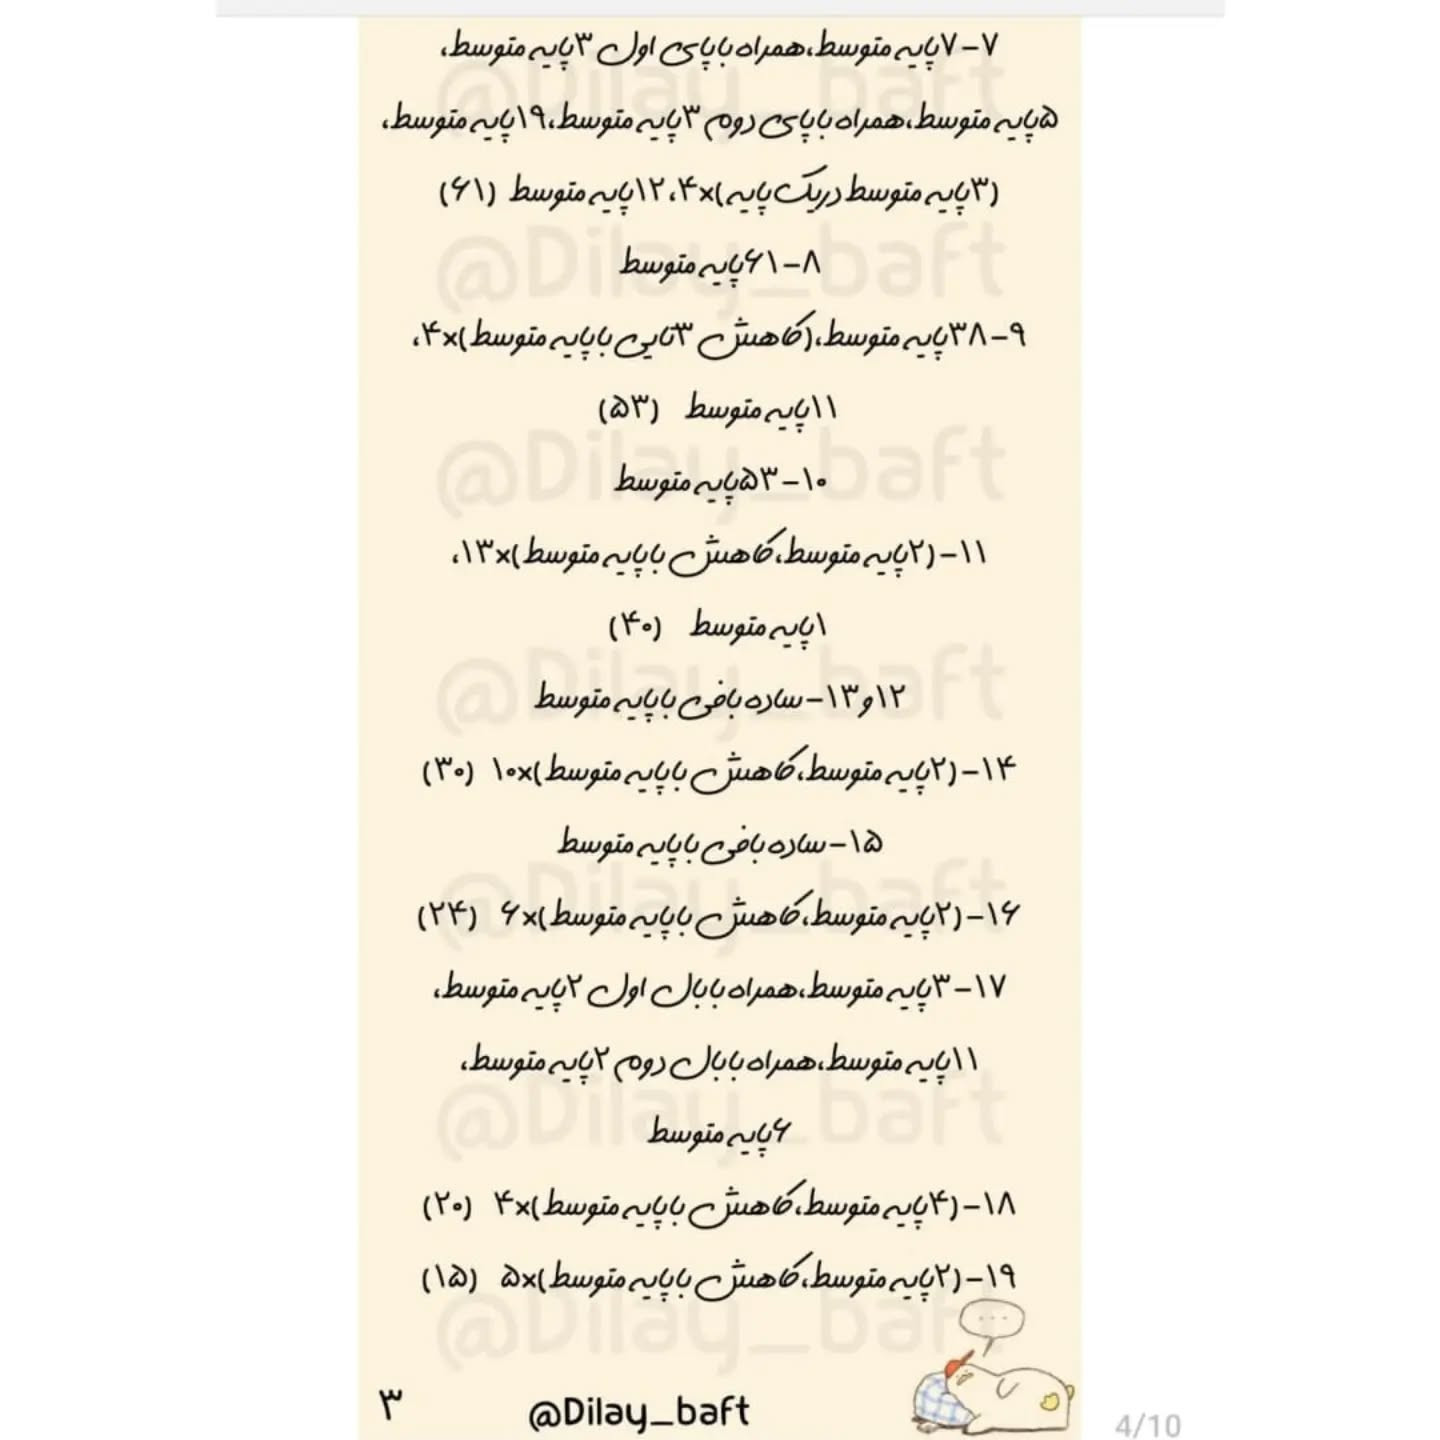 ۷-۷پایه متوسط،همراه باپای اول ۳پایه متوسط،
۵پایه متوسط،همراه باپای دوم ۳پایه متوسط،۱۹پایه متوسط،
(۳پایه متوسط دریک پایه)×۴،۱۲پایه متوسط (۶۱)
۸-۶۱پایه متوسط
۹-۳۸پایه متوسط،(کاهش ۳تایی باپایه متوسط)×۴،
۱۱پایه متوسط (۵۳)
۱۰-۵۳پایه متوسط
۱۱-(۲پایه متوسط،کاهش باپایه متوسط)×۱۳،
۱پایه متوسط (۴۰)
۱۲و۱۳-ساده بافی باپایه متوسط
۱۴-(۲پایه متوسط،کاهش باپایه متوسط)×۱۰ (۳۰)
۱۵-ساده بافی باپایه متوسط
۱۶-(۲پایه متوسط،کاهش باپایه متوسط)×۶ (۲۴)
۱۷-۳پایه متوسط،همراه بابال اول ۲پایه متوسط،
۱۱پایه متوسط،همراه بابال دوم ۲پایه متوسط،
۶پایه متوسط
۱۸-(۴پایه متوسط،کاهش باپایه متوسط)×۴ (۲۰)
۱۹-(۲پایه متوسط،کاهش باپایه متوسط)×۵ (۱۵)
۳
@Dilay_baft
4/10
@Dilay_baft
@Dilay_baft
@Dilay_baft
@Dilay_baft
@Dilay_baft
@Dilay_baft
@Dilay_baft